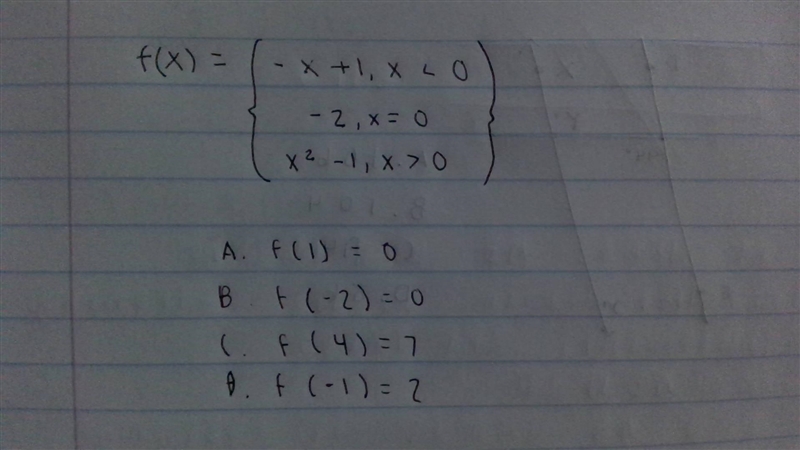 f(x) = { - x + 1, x < 0
- 2, x = 0
x² - 1, x > 0 }
A. f(1) = 0
B f(-2) = 0
C. f(4) = 7
D. f(-1) = 2